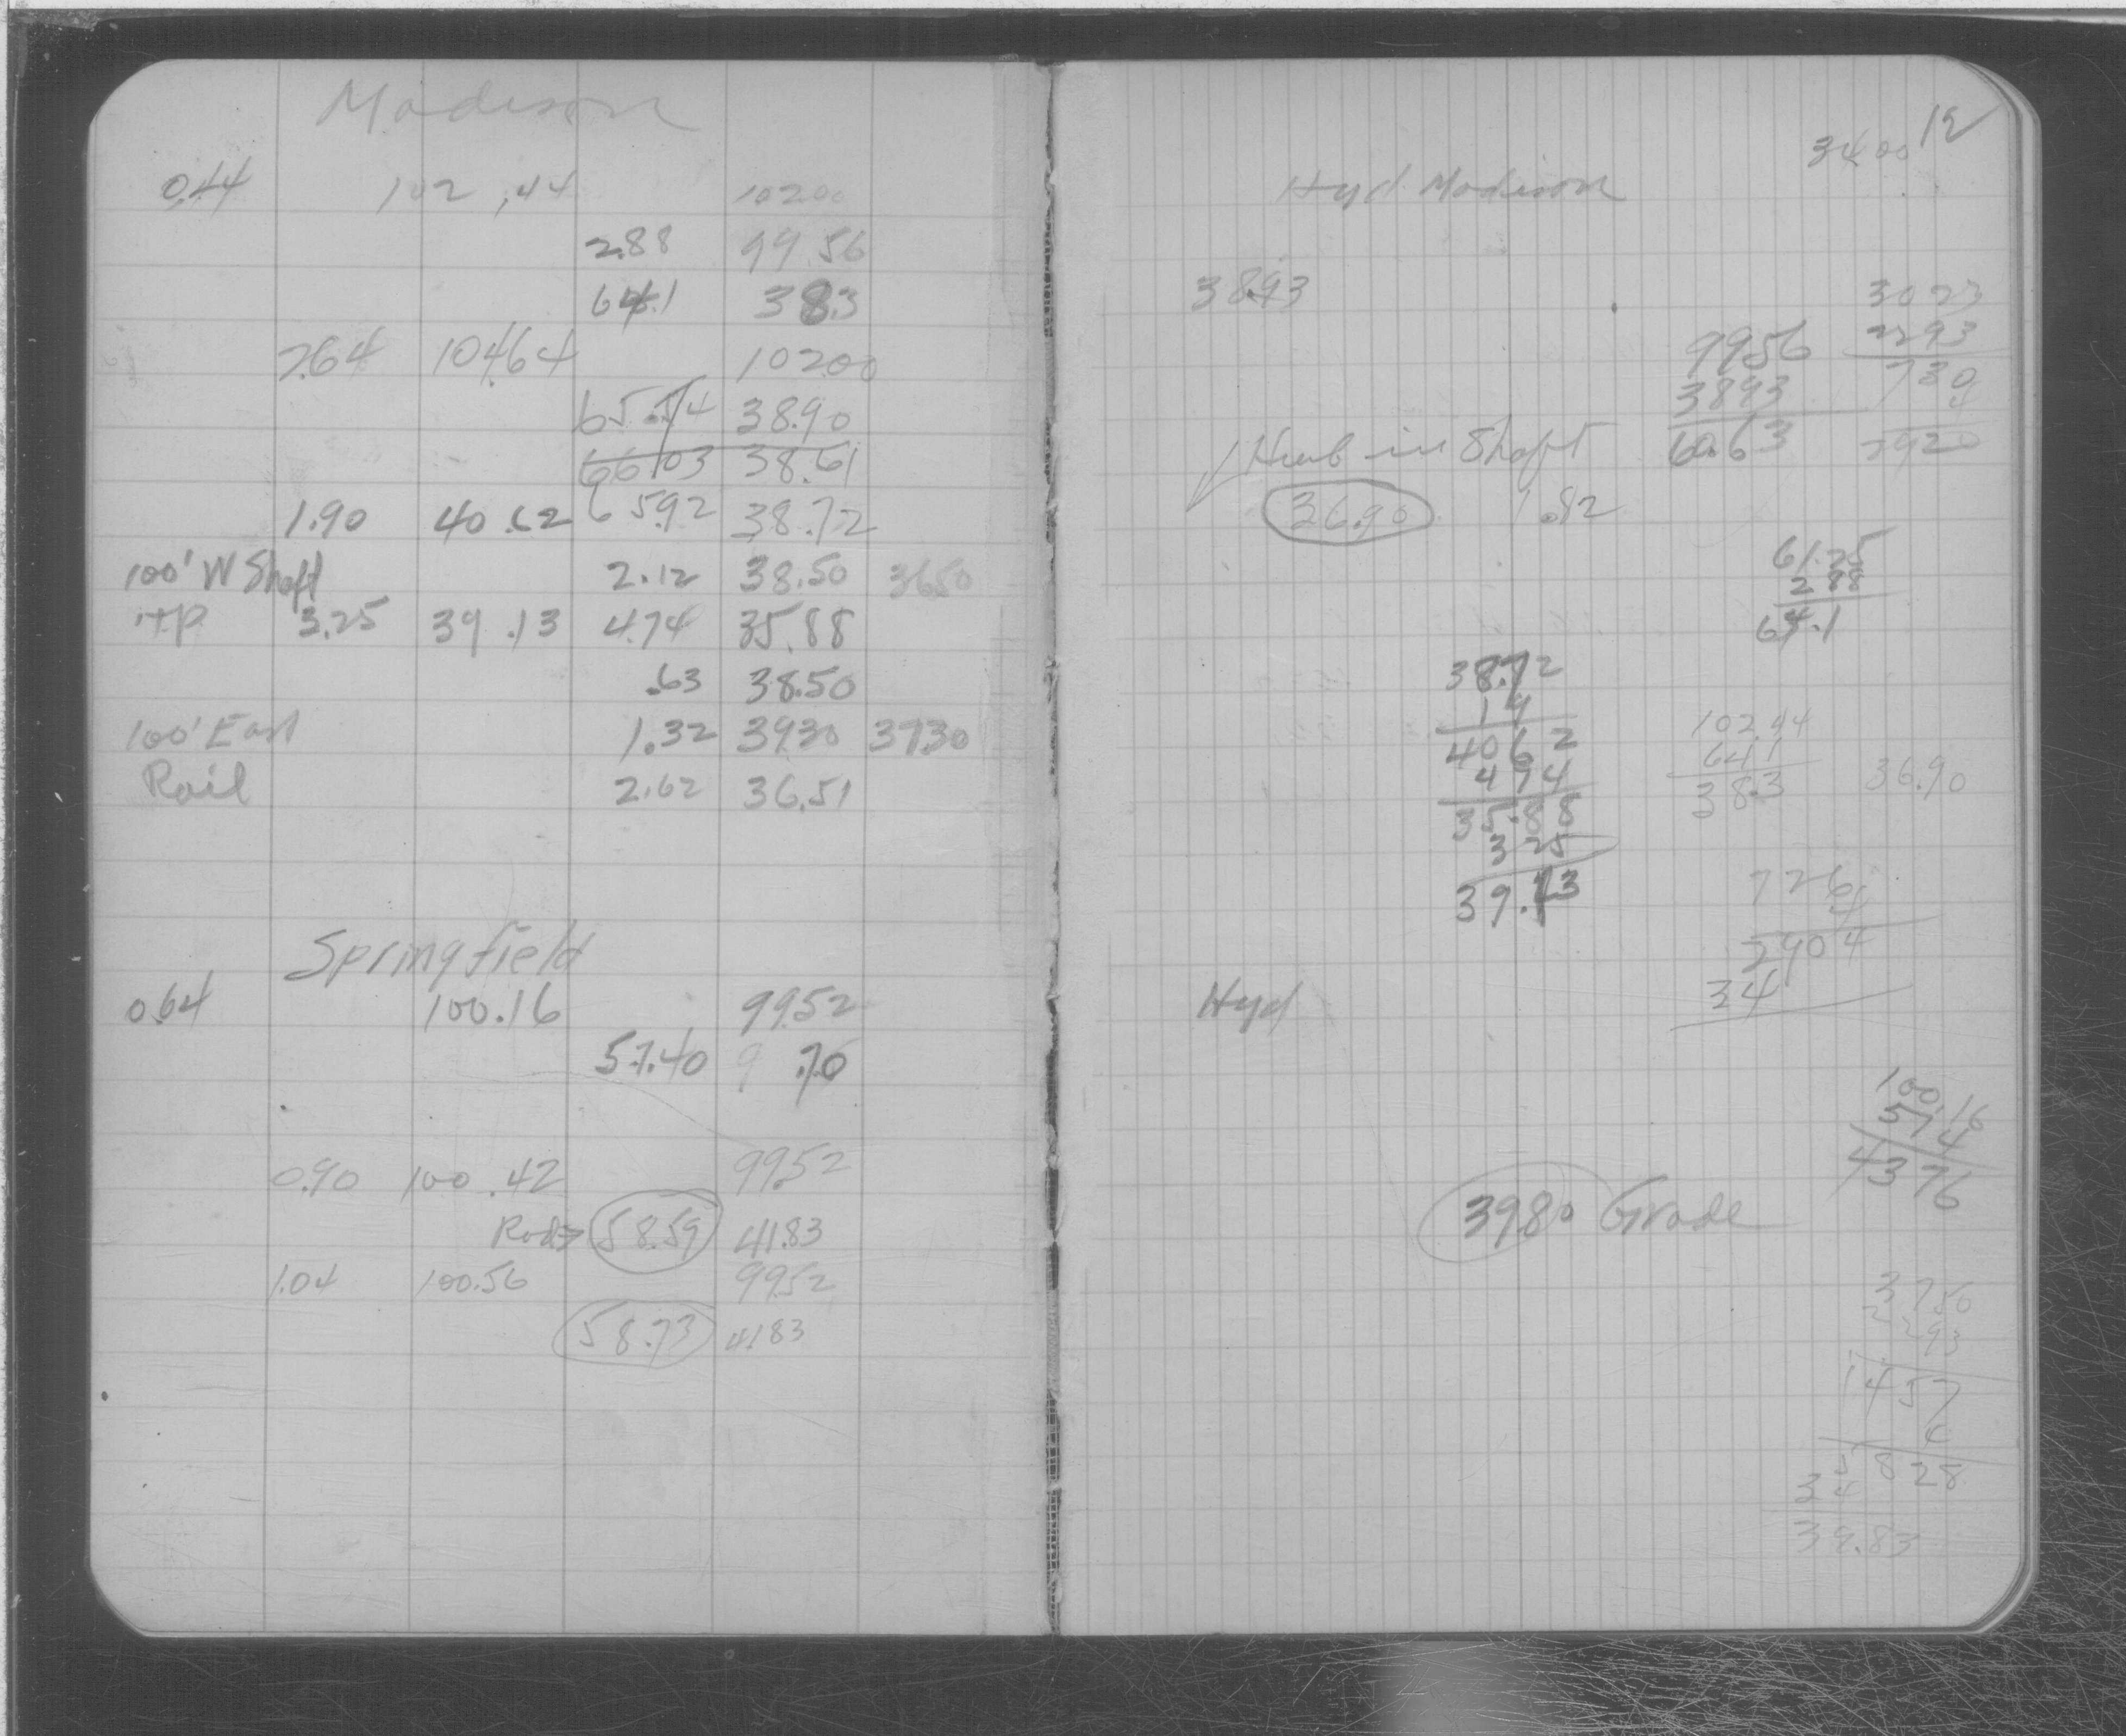 Madison
0.44 102.44 102.00
2.88 99.56
64.1 38.3
2.64 104.64 102.00
65.74 38.90
66.03 38.61
1.90 40.62 65.92 38.72
100' W Shaft 2.12 38.50 36.50
TP 3.25 39.13 4.74 35.88
.63 38.50
100' East 1.32 39.30 37.30
Rail 2.62 36.51
Springfield
0.64 100.16 99.52
57.40 9 .76
0.90 100.42 99.52
Rod → 58.59 41.83
1.04 100.56 99.52
58.73 41.83
12
34.00
Hyd Madison
38.93
3023
2293
730
4
2920
9956
3893
60.63
Hub in Shaft
36.90 1.82
61.25
2.88
64.1
38.72
1 9
40 62
4 74
35.88
3 25
39.13
102.44
641
38.3
36.90
726
4
2904
34
Hyd
100.16
57.4
43 76
39.80 Grade
3750
2293
1457
4
5828
34
39.83